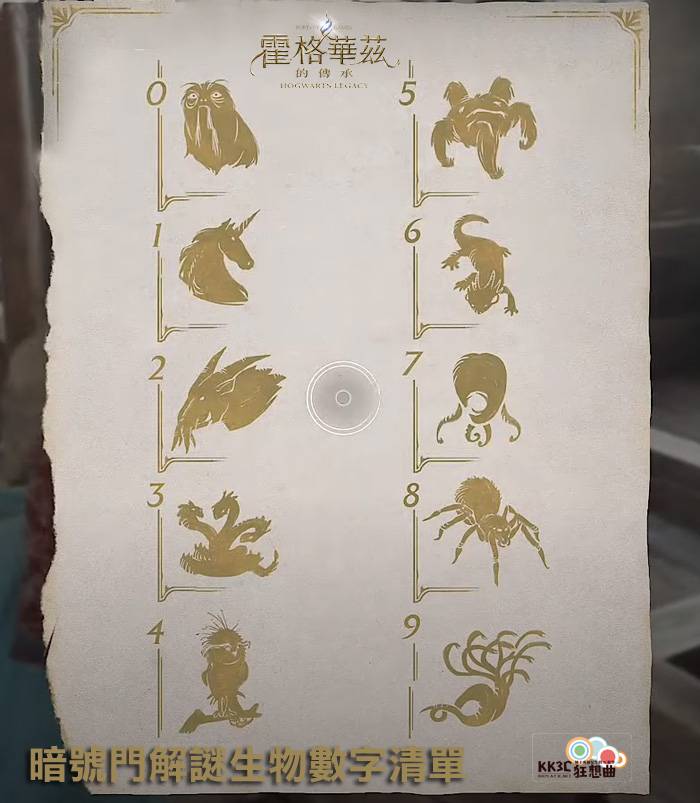 霍格華茲
的傳承
HOGWARTS LEGACY
0
5
1
6
2
7
3
8
4
9
暗號門解謎生物數字清單
KK3C
狂想曲